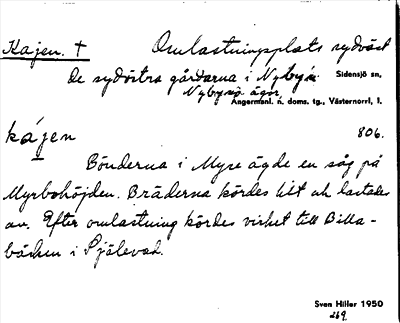 Kajen. † Omlastningsplats sydväst
De sydöstra gårdarna i Nybyn Sidensjö sn,
Nybysjö ägor.
Ångermanl. n. doms. tg., Västernorrl. l.
kájen 806.
Bönderna i Myre ägde en såg på
Myrbohöjden. Bräderna kördes hit och lastades
av. Efter omlastning kördes virket till Billa-
bäcken i Själevad.
Sven Hiller 1950
269.